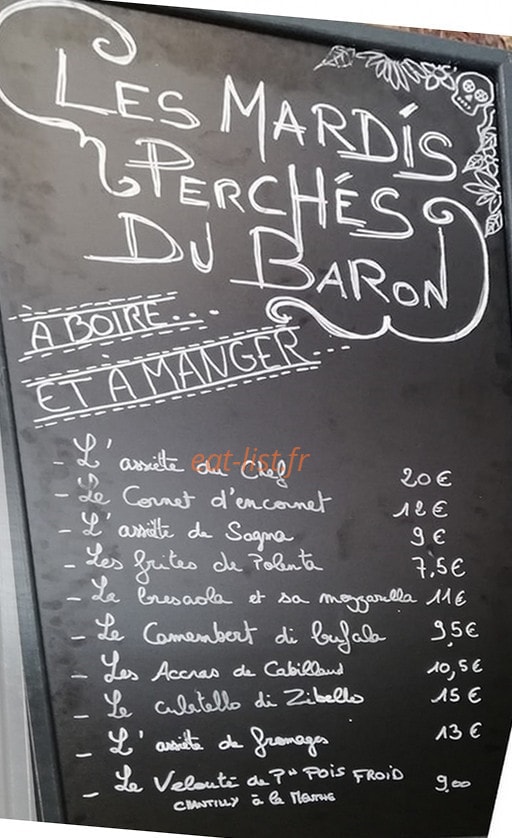 LES MARDIS
PERCHÉS
DU BARON
À BOIRE...
ET À MANGER...
- L'assiette du Chef 20 €
eat-list.fr
- Le Cornet d'encornet 12 €
- L'assiette de Sagna 9 €
- Les frites de Polenta 7,5 €
- La bresaola et sa mozzarella 11 €
- Le Camembert di bufala 9,5 €
- Les Accras de Cabillaud 10,5 €
- Le culatello di Zibello 15 €
- L'assiette de fromages 13 €
- Le Velouté de Pts POIS FROID 9,00
CHANTILLY à la MENTHE